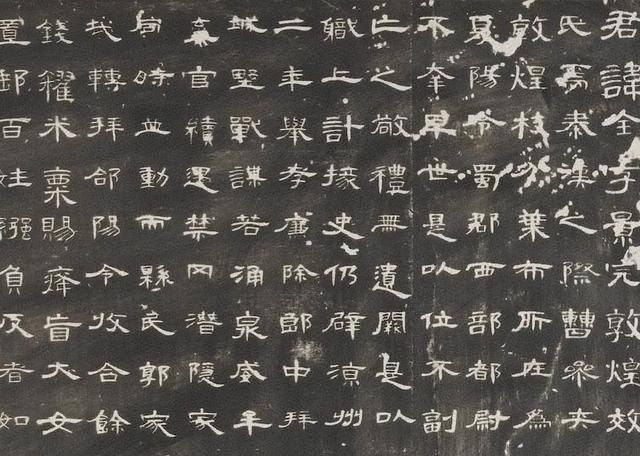 君諱全字景完敦煌效
氏焉秦漢之際曹參夾
敦煌枝分葉布所在為
夏陽令蜀郡西部都尉
不幸早世是以位不副
亡之敬禮無遺闕是以
職上計掾史仍辟涼州
二年舉孝廉除郎中拜
城野戰謀若涌泉威牟
棄官續遇禁冈潛隱家
同時並動而縣民郭家
哉轉拜郃陽令收合餘
錢糴米粟賜癃盲大女
置郵百姓繦負反者如